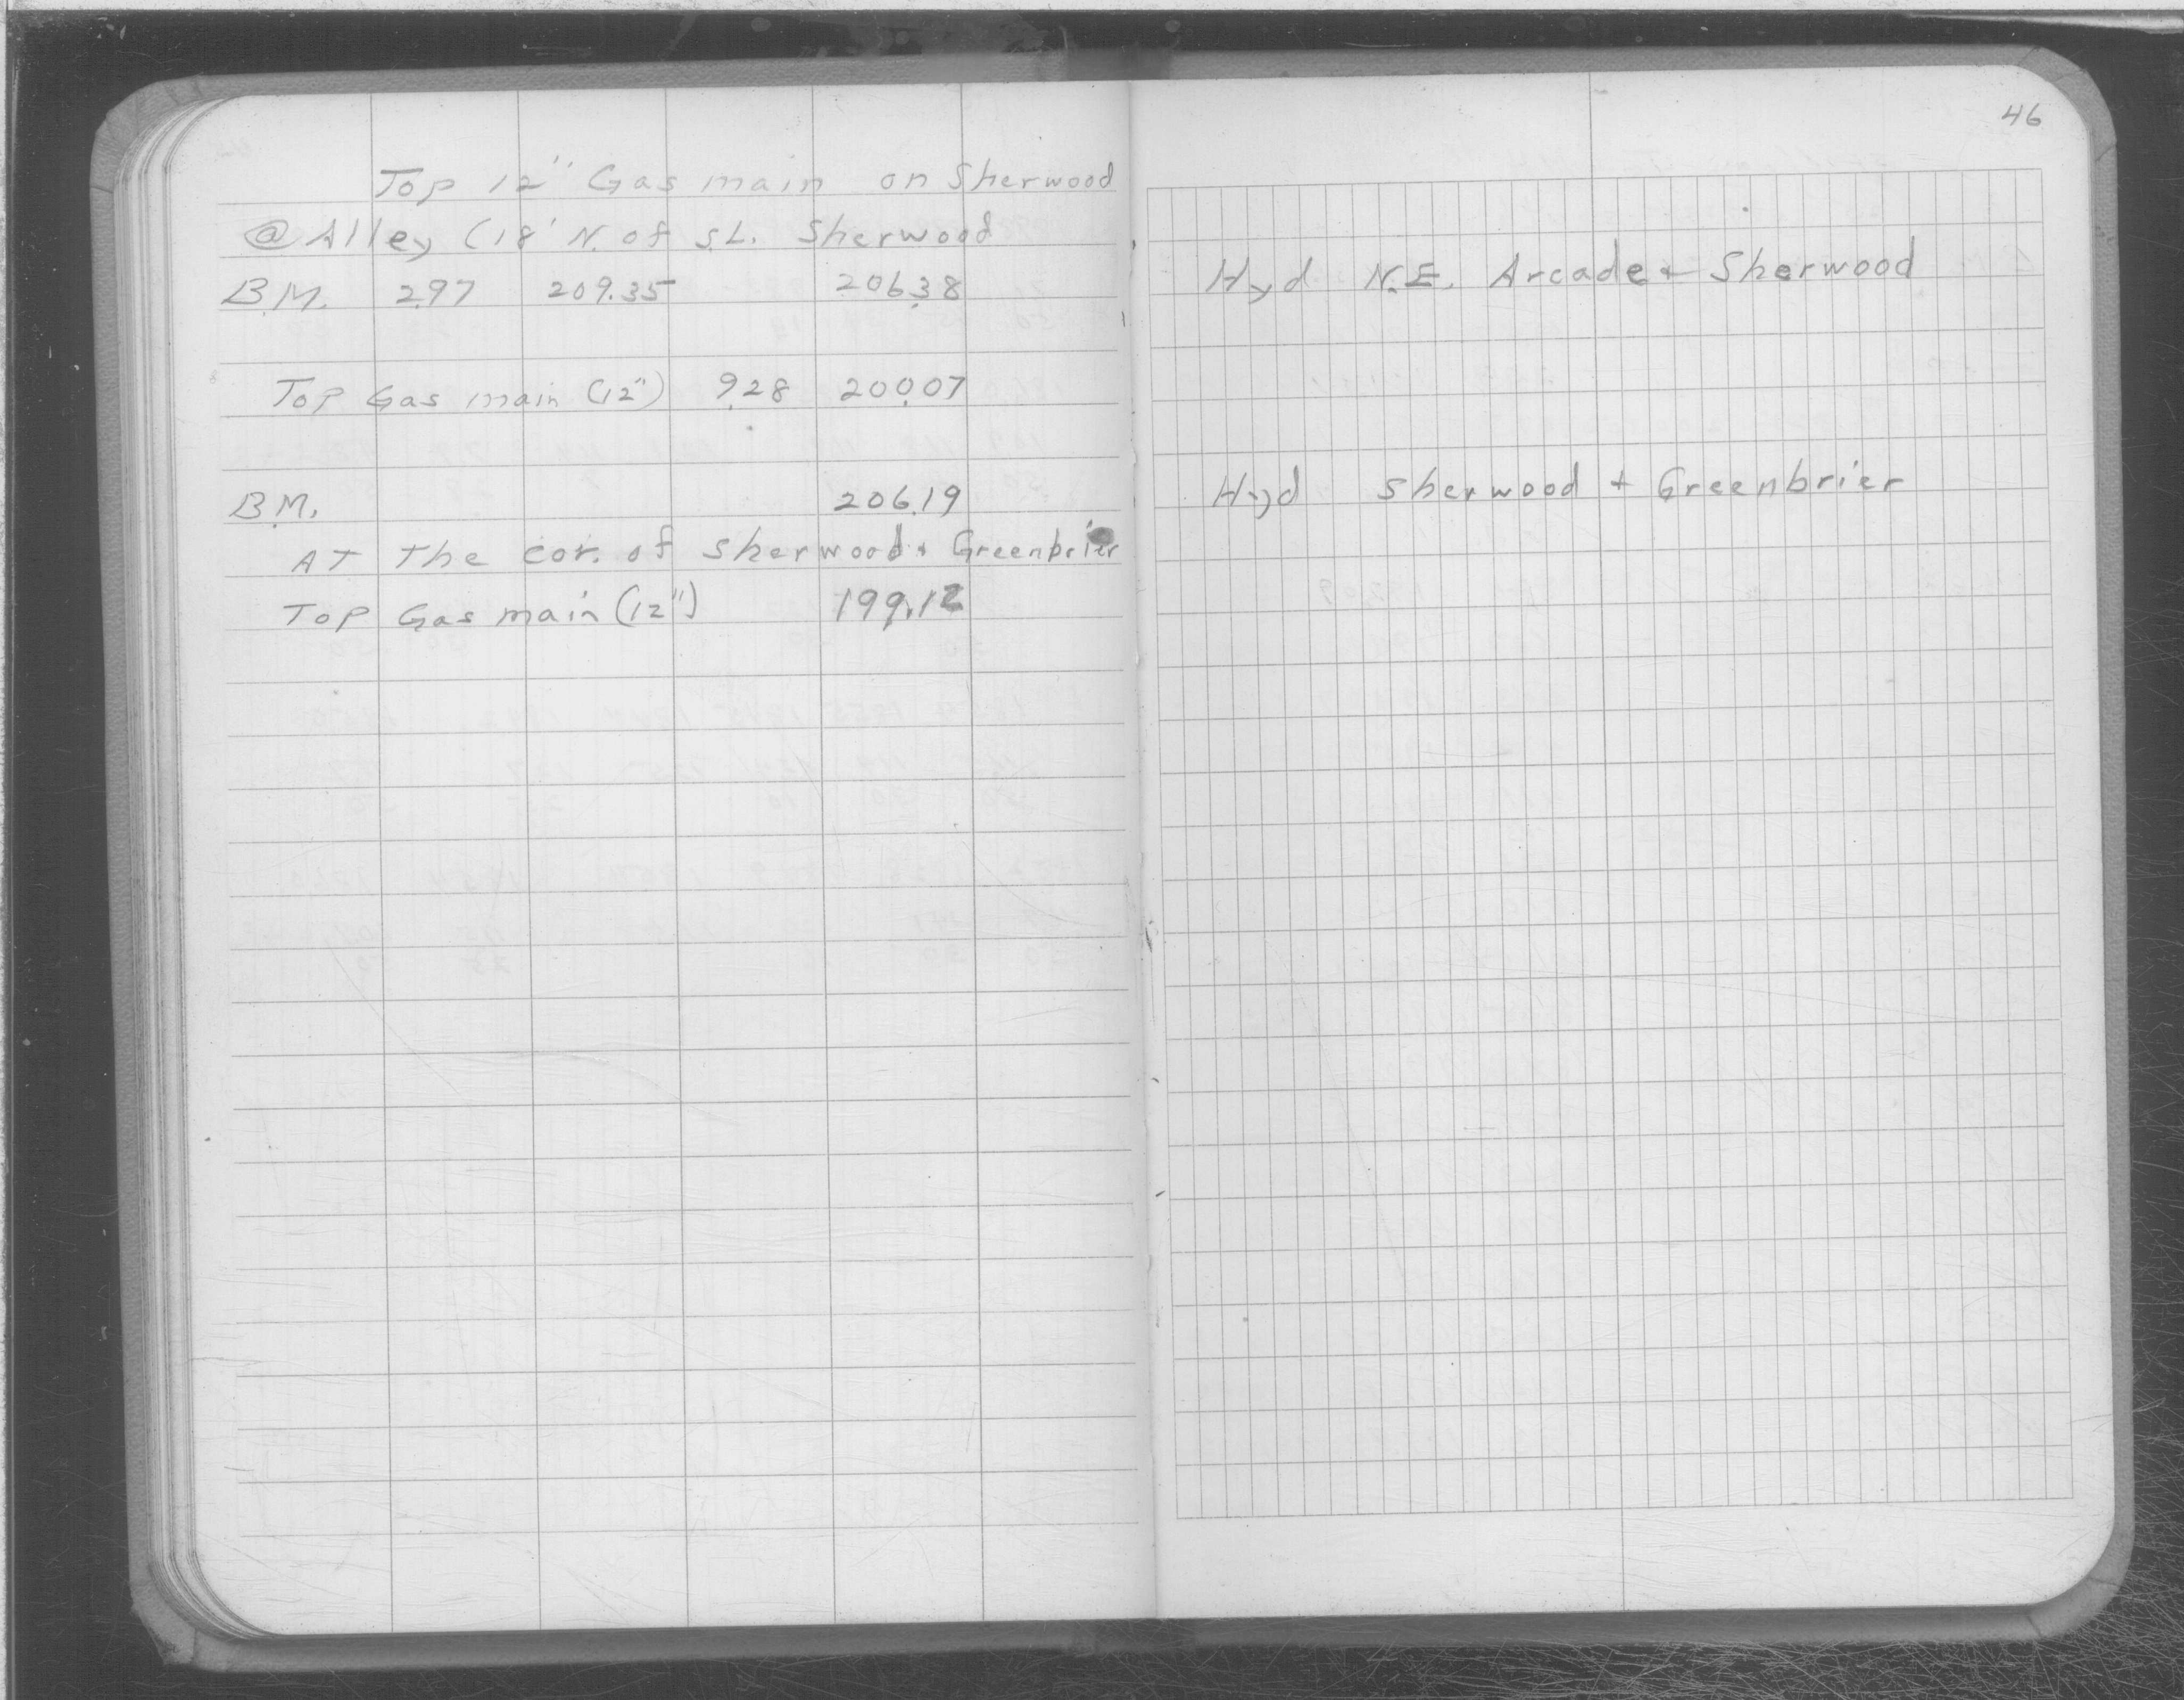 46
Top 12" Gas main on Sherwood
@ Alley (18' N. of S.L. Sherwood
B.M. 2.97 209.35 206.38 Hyd N.E. Arcade + Sherwood
Top Gas main (12") 9.28 200.07
B.M. 206.19 Hyd Sherwood + Greenbrier
AT The cor. of Sherwood + Greenbrier
Top Gas main (12") 199.12